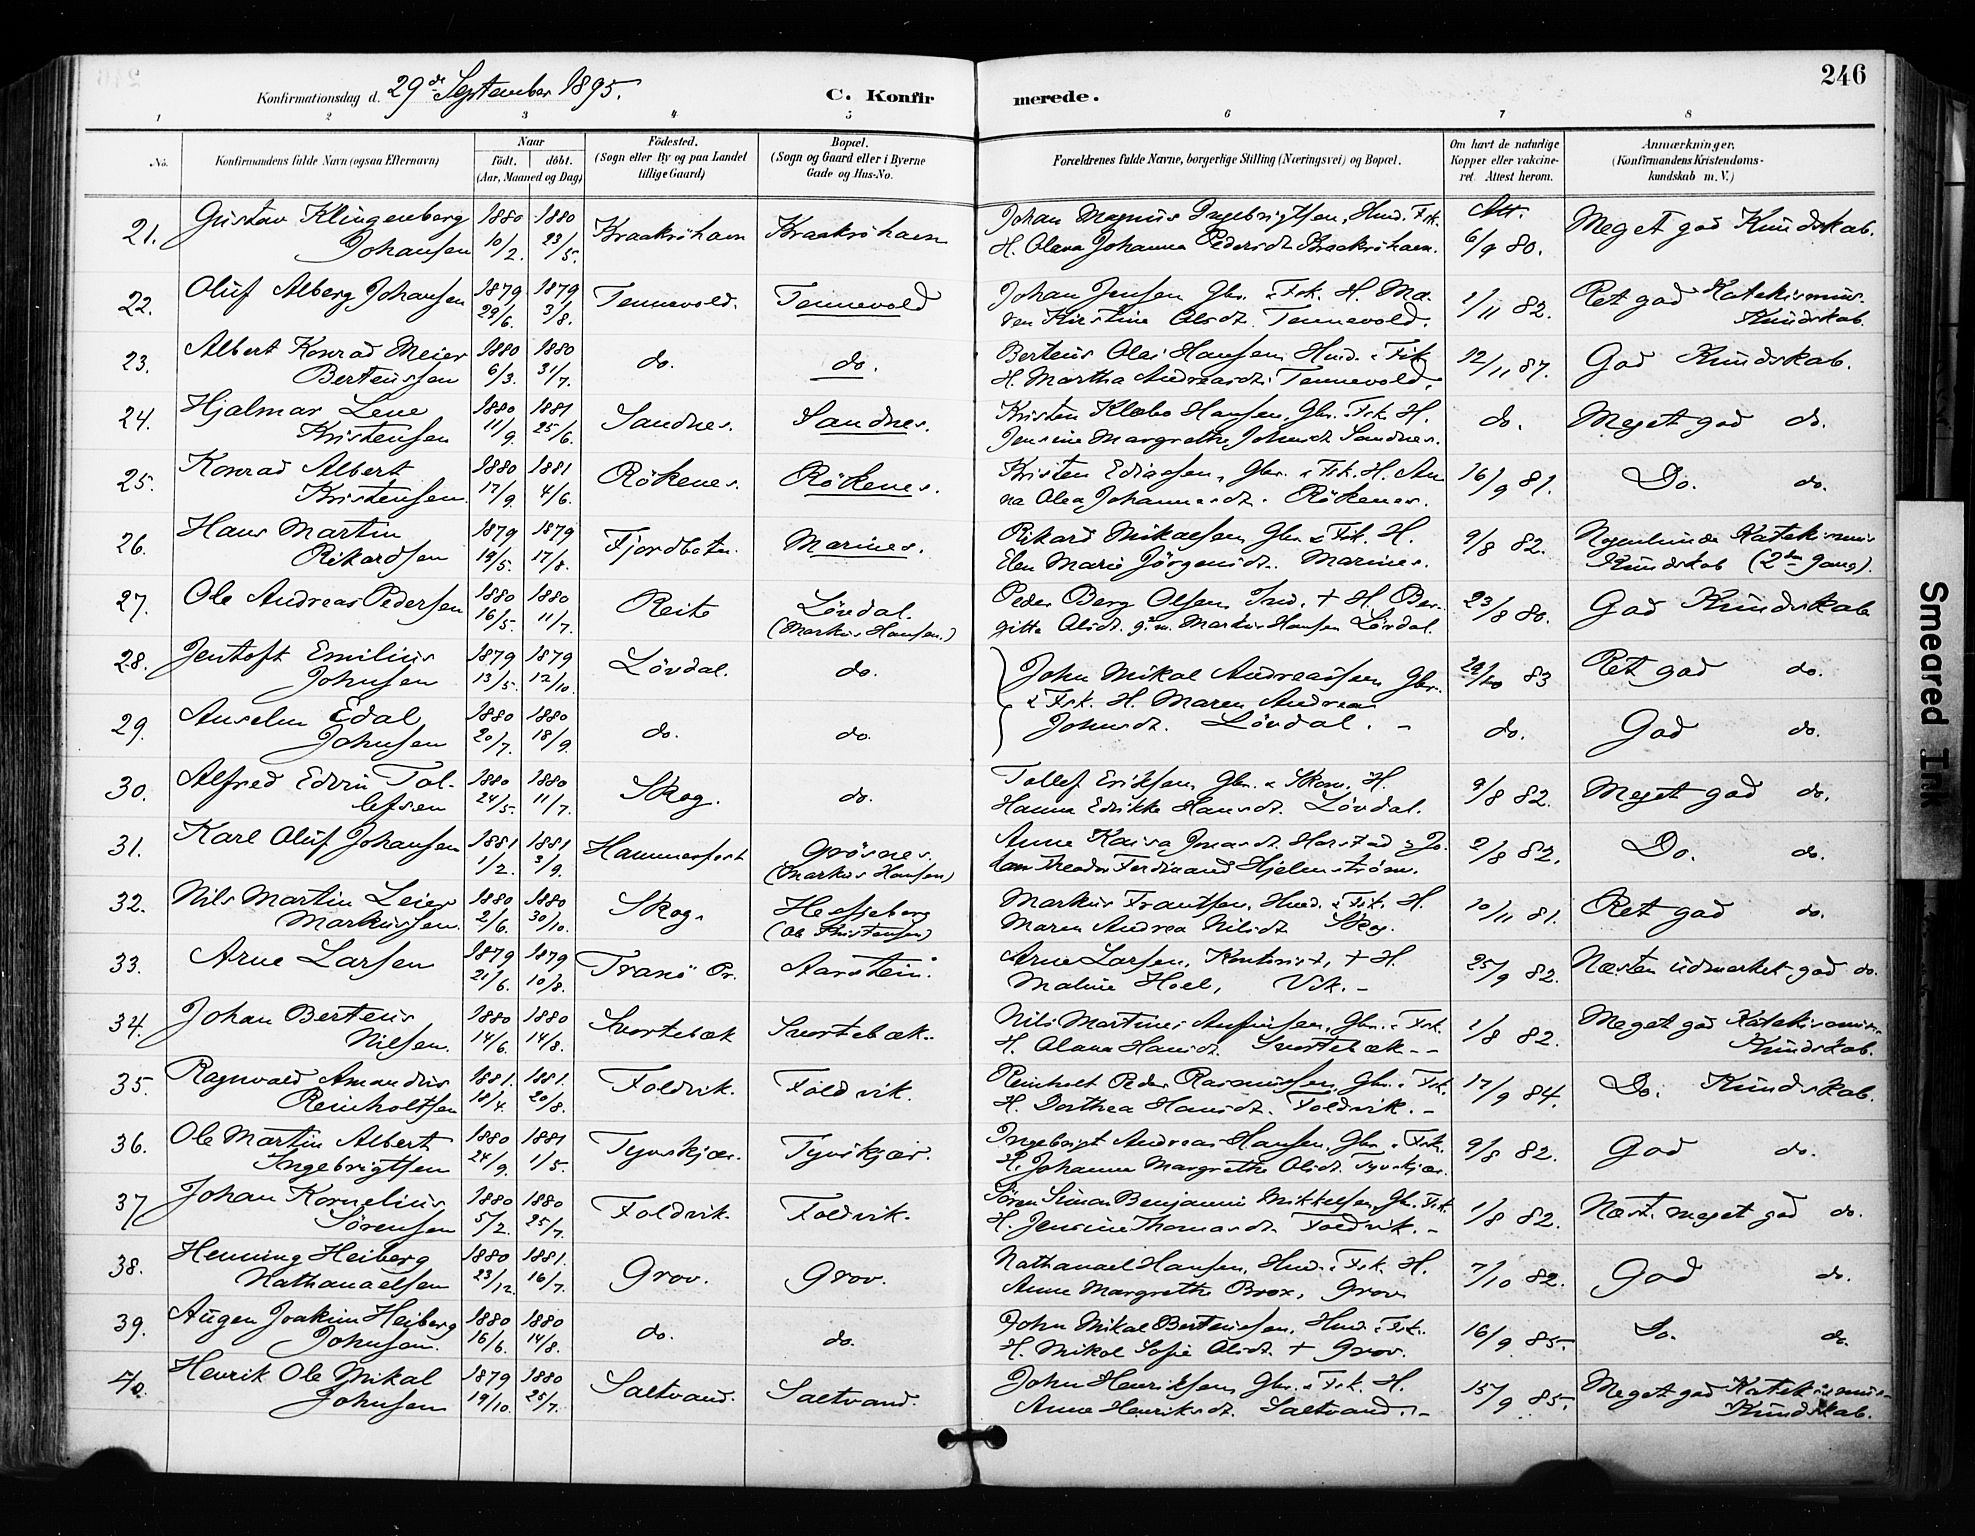 246
Konfirmationsdag d. 29de September 1895.
C. Konfirmerede.
1 2 3 4 5 6 7 8
No.
Konfirmandens fulde Navn (ogsaa Efternavn)
Naar
født. døbt.
(Aar, Maaned og Dag)
Fødested.
(Sogn eller By og paa Landet
tillige Gaard)
Bopæl.
(Sogn og Gaard eller i Byerne
Gade og Hus-No.
Forældrenes fulde Navne, borgerlige Stilling (Næringsvei) og Bopæl.
Om havt de naturlige
Kopper eller vakcine-
ret. Attest herom.
Anmærkninger.
(Konfirmandens Kristendoms-
kundskab m.V.)
21. Gustav Klingenberg 1880 1880 Kraakrøhavn Kraakrøhavn Johan Magnus Ingebrigtsen, Husm. Fsk. Att. Meget god Kundskab.
Johansen 10/2. 23/5. H. Olava Johanna Pedersdt. Kraakrøhavn. 6/9 80.
22. Oluf Alberg Johansen 1879 1879 Tennevold. Tennevold Johan Jensen Gbr. & Fsk. H. Ma- 1/11 82. Ret god Katekismus-
29/6. 3/8. ren Kirstine Olsdt. Tennevold. Kundskab.
23. Albert Konrad Meier 1880 1880 do. do. Berteus Olai Hansen Husm. & Fsk. 12/11 87. God Kundskab.
Berteussen 6/3. 31/7. H. Martha Andreasdt. Tennevold.
24. Hjalmar Leve 1880 1881 Sandnes. Sandnes. Kristen Klæbo Hansen, Gbr. Fsk. H. do. Meget god do.
Kristensen 11/9. 25/6. Jensine Margrethe Johnsdt. Sandnes.
25. Konrad Albert 1880 1881 Røkenes. Røkenes. Kristen Ediassen, Gbr. & Fsk. H. An- 16/9 81. Do. do.
Kristensen. 17/9. 4/6. na Olea Johannesdt. Røkenes.
26. Hans Martin 1879 1879 Fjordbotn. Marines. Rikard Mikaelsen Gbr. & Fsk. H. 9/8 82. Nogenlunde Katekismus
Rikardsen 19/5. 17/8. Elen Marie Jørgensdt. Marines. Kundskab (2den Gang).
27. Ole Andreas Pedersen 1880 1880 Reite Løvdal. Peder Berg Olsen Ind. + H. Ber- 23/8 80. God Kundskab
16/5. 11/7. (Markus Hansen.) gitte Olsdt. g. m. Markus Hansen Løvdal.
28. Jentoft Emilius 1879 1879 Løvdal. do. John Mikal Andreassen Gbr. 29/10 83 Ret god do.
Johnsen 13/5. 12/10. & Fsk. H. Maren Andrea
29. Anselm Edal 1880 1880 do. do. Johnsdt. Løvdal. - do. God do.
Johnsen 20/7. 18/9.
30. Alfred Edvin Tol- 1880 1880 Skog. do. Tollef Eriksen Gbr. & Skom. H. 9/8 82. Meget god do.
lefsen 24/5. 11/7. Hanna Edrikke Hansdt. Løvdal.
31. Karl Oluf Johansen 1881 1881 Hammerfest Grøsnes. Anne Kaisa Jonasdt. Harstad & Jo- 2/8 82. Do. do.
1/2. 3/9. (Markus Hansen) han Theodor Ferdinand Hjelmstrøm.
32. Nils Martin Leier 1880 1880 Skog. Hesjeberg Markus Frantsen, Husm. & Fsk. H. 10/11 81. Ret god do.
Markussen. 2/6. 30/10. (Ole Kristensen) Maren Andrea Nilsdt. Skog.
33. Arne Larsen 1879 1879 Tranø Pr. Aarstein. Arne Larsen, Kontorist, + H. 25/9 82. Næsten udmærket god do.
21/6. 10/8. Maline Hoel, Vik. -
34. Johan Berteus 1880 1880 Svortebæk Svortebæk. Nils Martines Anfinsen, Gbr. & Fsk. 1/8 82. Meget god Katekismus-
Nilsen. 14/6. 14/8. H. Olava Hansdt. Svortebæk - - Kundskab.
35. Ragnvald Amandus 1881. 1881. Foldvik. Foldvik. Reinholt Peder Rasmussen, Gbr. & Fsk. 17/9 84. Do. Kundskab.
Reinholtsen 18/4. 20/8. H. Dorthea Hansdt. Foldvik. -
36. Ole Martin Albert 1880 1881 Tyvskjær. Tyvskjær. Ingebrigt Andreas Hansen, Gbr. & Fsk. 9/8 82. God do.
Ingebrigtsen 24/9. 1/5. H. Johanna Margrethe Olsdt. Tyvskjær.
37 Johan Kornelius 1880 1880 Foldvik. Foldvik. Søren Simon Benjamin Mikkelsen, Gbr. Fsk. 1/8 82. Næst. meget god do.
Sørensen 5/2. 25/7. H. Jensine Thomasdt. Foldvik. -
38. Henning Heiberg 1880 1881. Grov. Grov. Nathanael Hansen, Husm. & Fsk. H. 7/10 82. God do.
Nathanaelsen 23/12. 16/7. Anne Margrethe Brox, Grov
39. Augen Joakim Heiberg 1880 1880 do. do. John Mikal Berteussen, Husm. & Fsk. 16/9 85. Do. do.
Johnsen. 16/6. 14/8. H. Mikal Sofie Olsdt. + Grov.
40. Henrik Ole Mikal 1879 1880 Saltvand. Saltvand. John Henriksen Gbr. & Fsk. H. 15/9 85. Meget god Katekismus-
Johnsen 19/10. 25/7. Anne Henriksdt. Saltvand. - Kundskab.
Smeared Ink